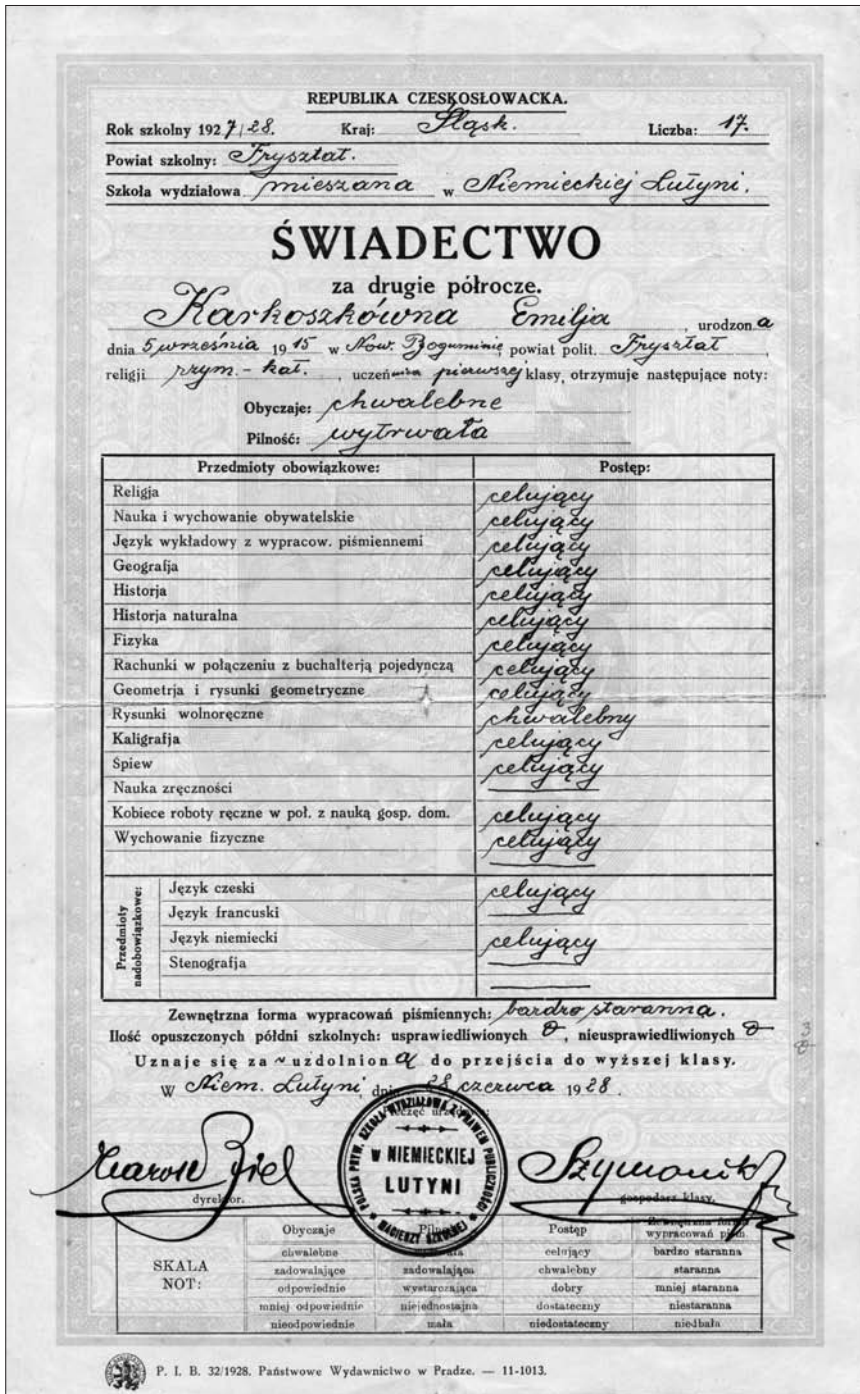 REPUBLIKA CZESKOSŁOWACKA.
Rok szkolny 1927/28. Kraj: Śląsk. Liczba: 17.
Powiat szkolny: Frysztat.
Szkoła wydziałowa mieszana w Niemieckiej Lutyni.
ŚWIADECTWO
za drugie półrocze.
Karkoszkówna Emilja, urodzona
dnia 5 września 1915 w Now. Boguminie, powiat polit. Frysztat,
religji rzym.-kat., uczennica pierwszej klasy, otrzymuje następujące noty:
Obyczaje: chwalebne
Pilność: wytrwała
Przedmioty obowiązkowe: Postęp:
Religja celujący
Nauka i wychowanie obywatelskie celujący
Język wykładowy z wypracow. piśmiennemi celujący
Geografja celujący
Historja celujący
Historja naturalna celujący
Fizyka celujący
Rachunki w połączeniu z buchalterją pojedynczą celujący
Geometrja i rysunki geometryczne celujący
Rysunki wolnoręczne chwalebny
Kaligrafja celujący
Śpiew celujący
Nauka zręczności
Kobiece roboty ręczne w poł. z nauką gosp. dom. celujący
Wychowanie fizyczne celujący
Przedmioty nadobowiązkowe:
Język czeski celujący
Język francuski
Język niemiecki celujący
Stenografja
Zewnętrzna forma wypracowań piśmiennych: bardzo staranna.
Ilość opuszczonych półdni szkolnych: usprawiedliwionych 0, nieusprawiedliwionych 0
Uznaje się za uzdolniona do przejścia do wyższej klasy.
W Niem. Lutyni, dnia 28 czerwca 1928.
Pieczęć urzędowa:
POLSKA PRYW. SZKOŁA WYDZIAŁOWA Z PRAWEM PUBLICZNOŚCI
W NIEMIECKIEJ
LUTYNI
MACIERZY SZKOLNEJ
Szymonik
dyrektor. gospodarz klasy.
SKALA NOT:
Obyczaje Pilność Postęp Zewnętrzna forma wypracowań piśm.
chwalebne celujący bardzo staranna
zadowalające zadowalająca chwalebny staranna
odpowiednie wystarczająca dobry mniej staranna
mniej odpowiednie niejednostajna dostateczny niestaranna
nieodpowiednie mała niedostateczny niedbała
P. I. B. 32/1928. Państwowe Wydawnictwo w Pradze. — 11-1013.